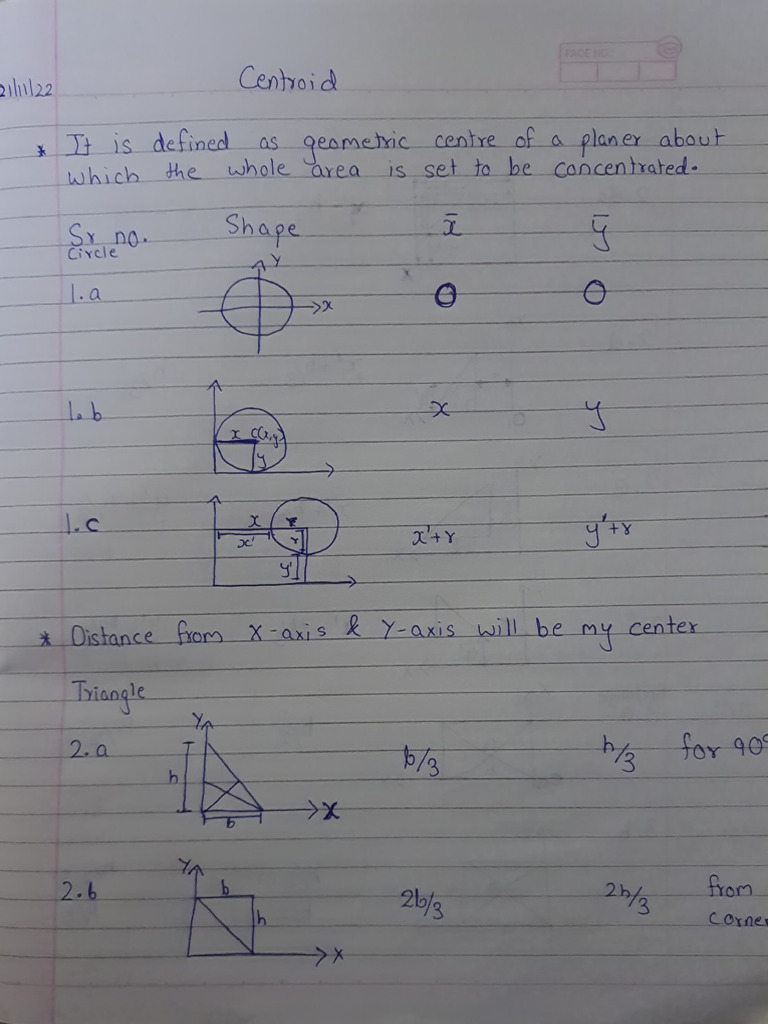 PAGE NO.:
21/11/22
Centroid
* It is defined as geometric centre of a planer about
which the whole area is set to be concentrated.
Sr no. Shape x̄ ȳ
Circle
Y
1.a X 0 0
1.b x C(x,y) x y
y
1.c x r x'+r y'+r
x' r
y'
* Distance from X-axis & Y-axis will be my center
Triangle
Y
2.a b/3 h/3 for 90°
h
X
b
Y
2.b b 2b/3 2h/3 from
h corner
X